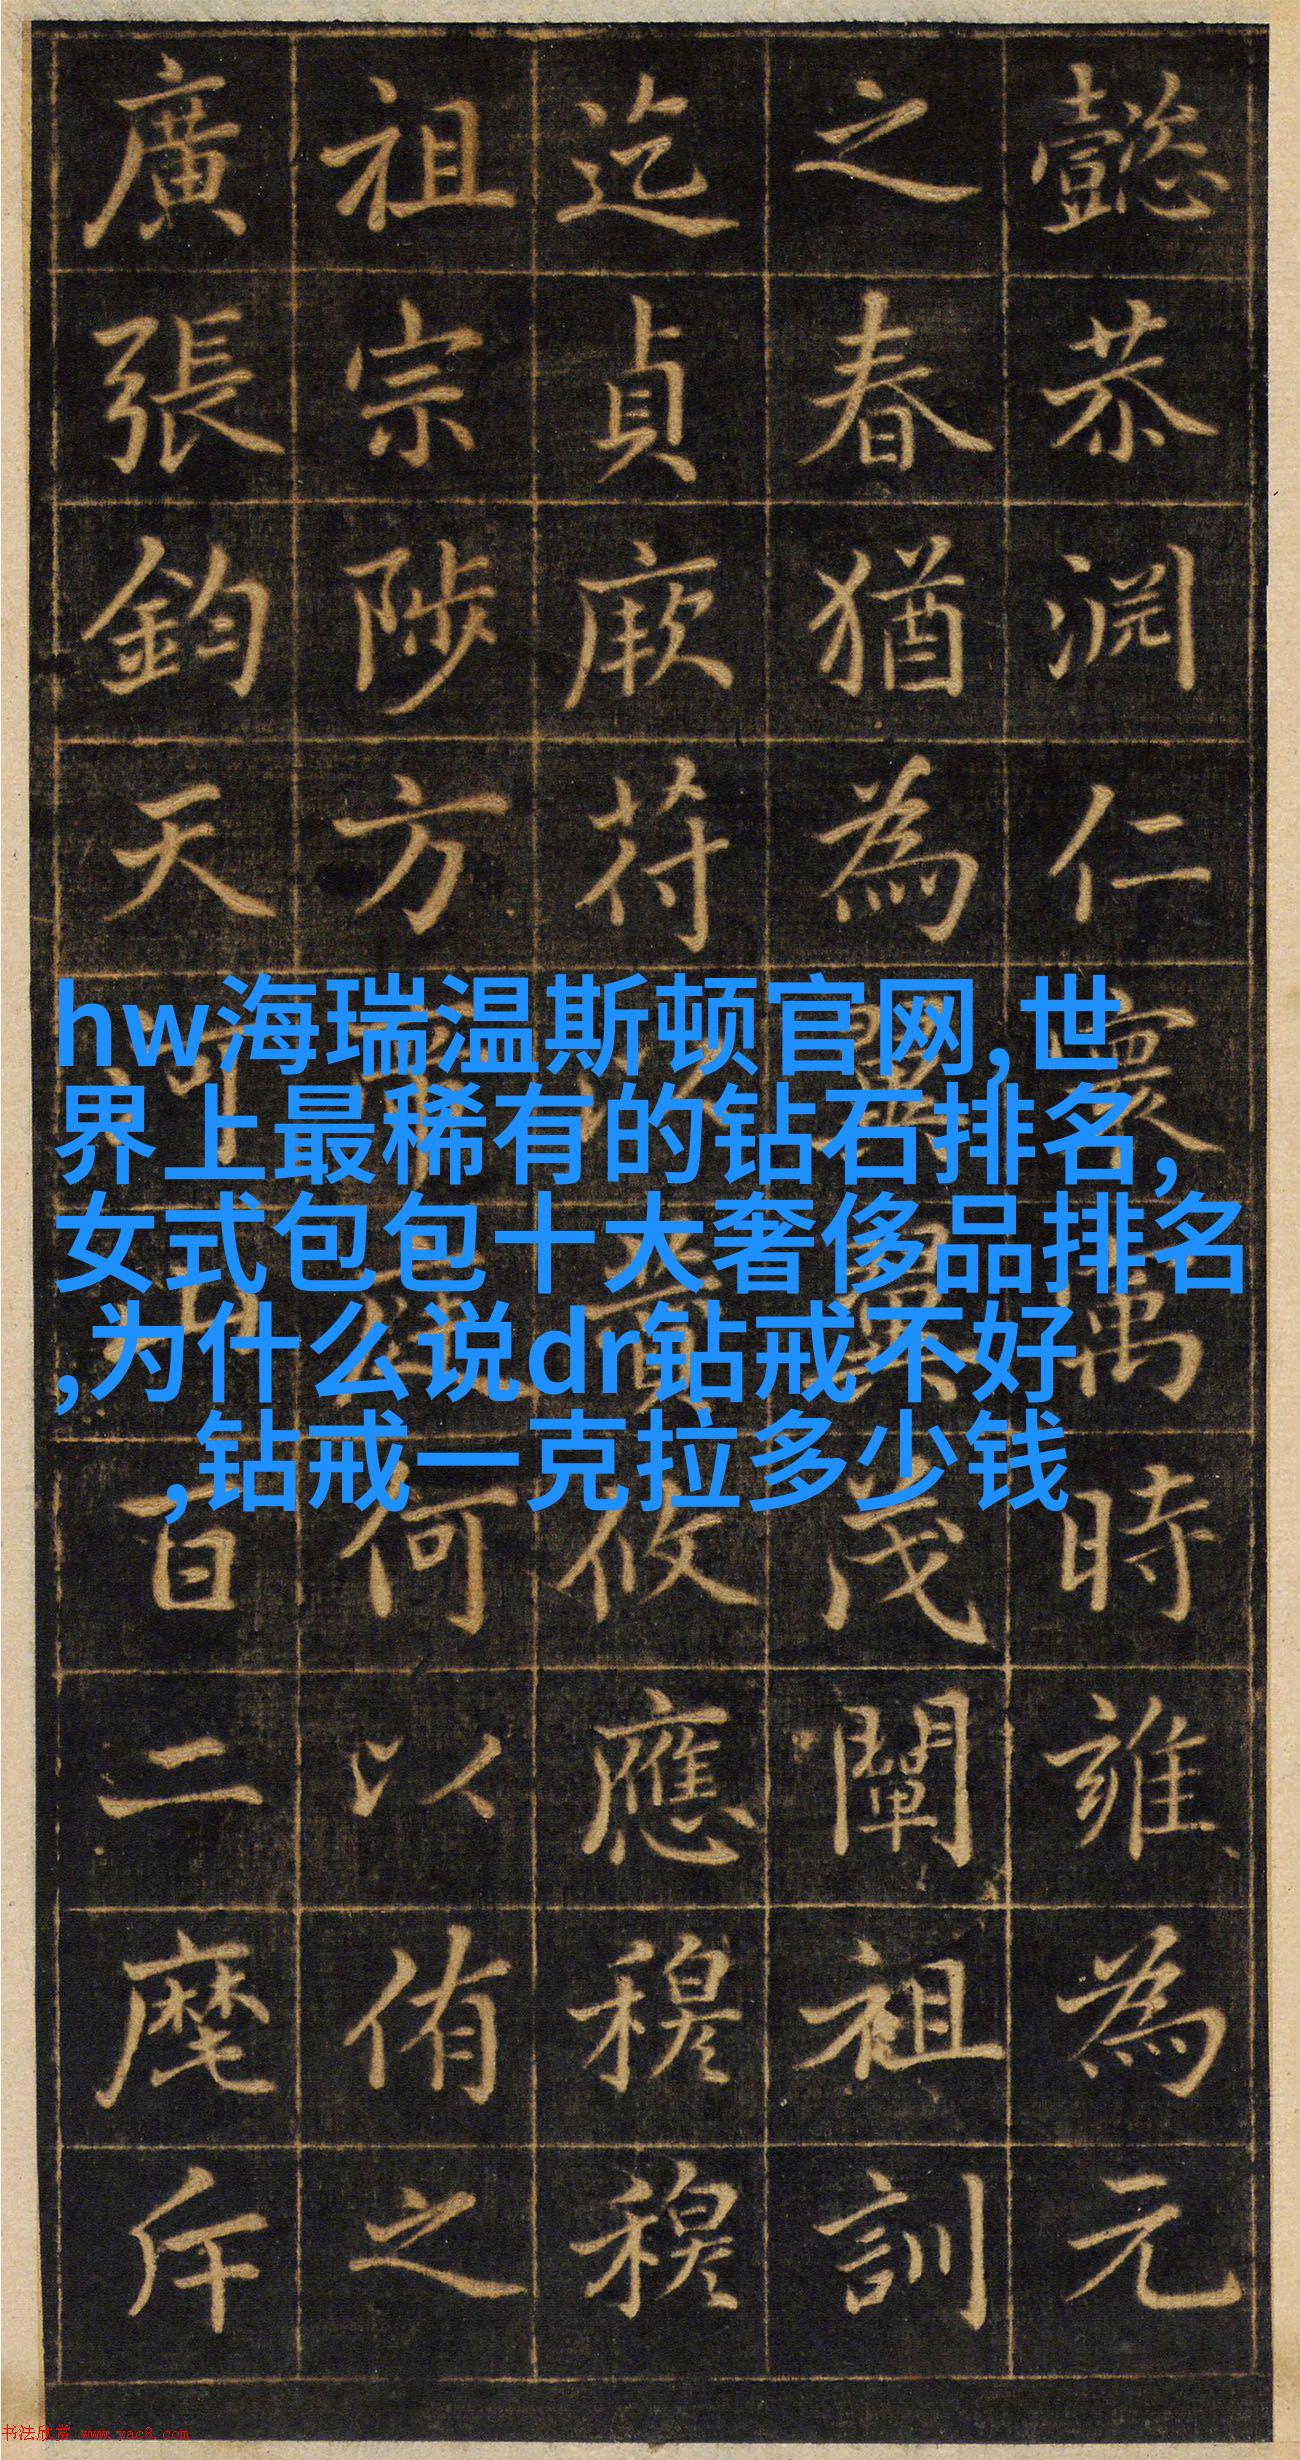 懿恭淵仁寰萬時雍為元
之春猶為茂闡祖訓
迄貞厥苻攸應穆穆
祖宗陟方何以侑之
廣張鈞天河山百二麾斥
hw海瑞温斯顿官网,世
界上最稀有的钻石排名,
女式包包十大奢侈品排名
,为什么说dr钻戒不好
,钻戒一克拉多少钱
书法欣赏 www.yac8.com